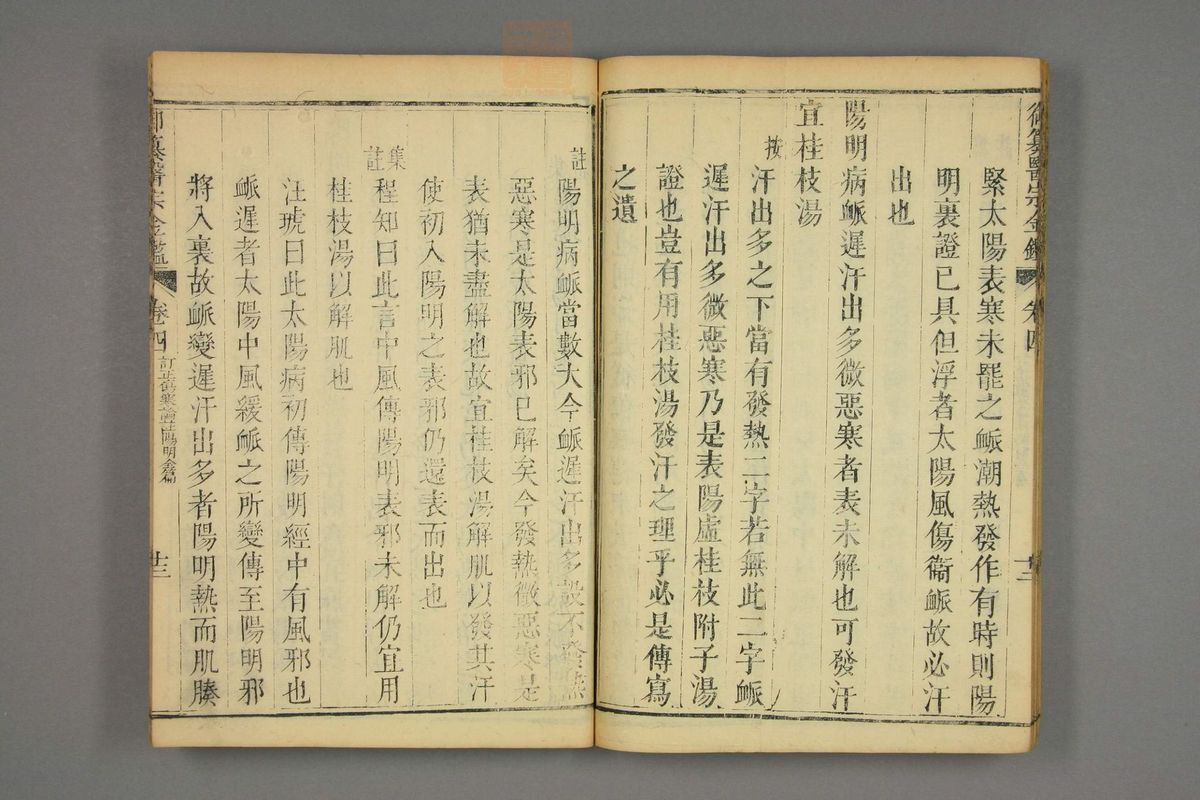 御纂醫宗金鑑
卷四
緊太陽表寒未罷之脈潮熱發作有時則陽
明裏證已具但浮者太陽風傷衞脈故必汗
出也
陽明病脈遲汗出多微惡寒者表未解也可發汗
宜桂枝湯
按
汗出多之下當有發熱二字若無此二字脈
遲汗出多微惡寒乃是表陽虛桂枝附子湯
證也豈有用桂枝湯發汗之理乎必是傳寫
之遺
註
陽明病脈當數大今脈遲汗出多設不發熱
惡寒是太陽表邪已解矣今發熱微惡寒是
表猶未盡解也故宜桂枝湯解肌以發其汗
使初入陽明之表邪仍還表而出也
集註
程知曰此言中風傳陽明表邪未解仍宜用
桂枝湯以解肌也
汪琥曰此太陽病初傳陽明經中有風邪也
脈遲者太陽中風緩脈之所變傳至陽明邪
將入裏故脈變遲汗出多者陽明熱而肌腠
御纂醫宗金鑑
卷四
訂正傷寒論註陽明全篇
廿三